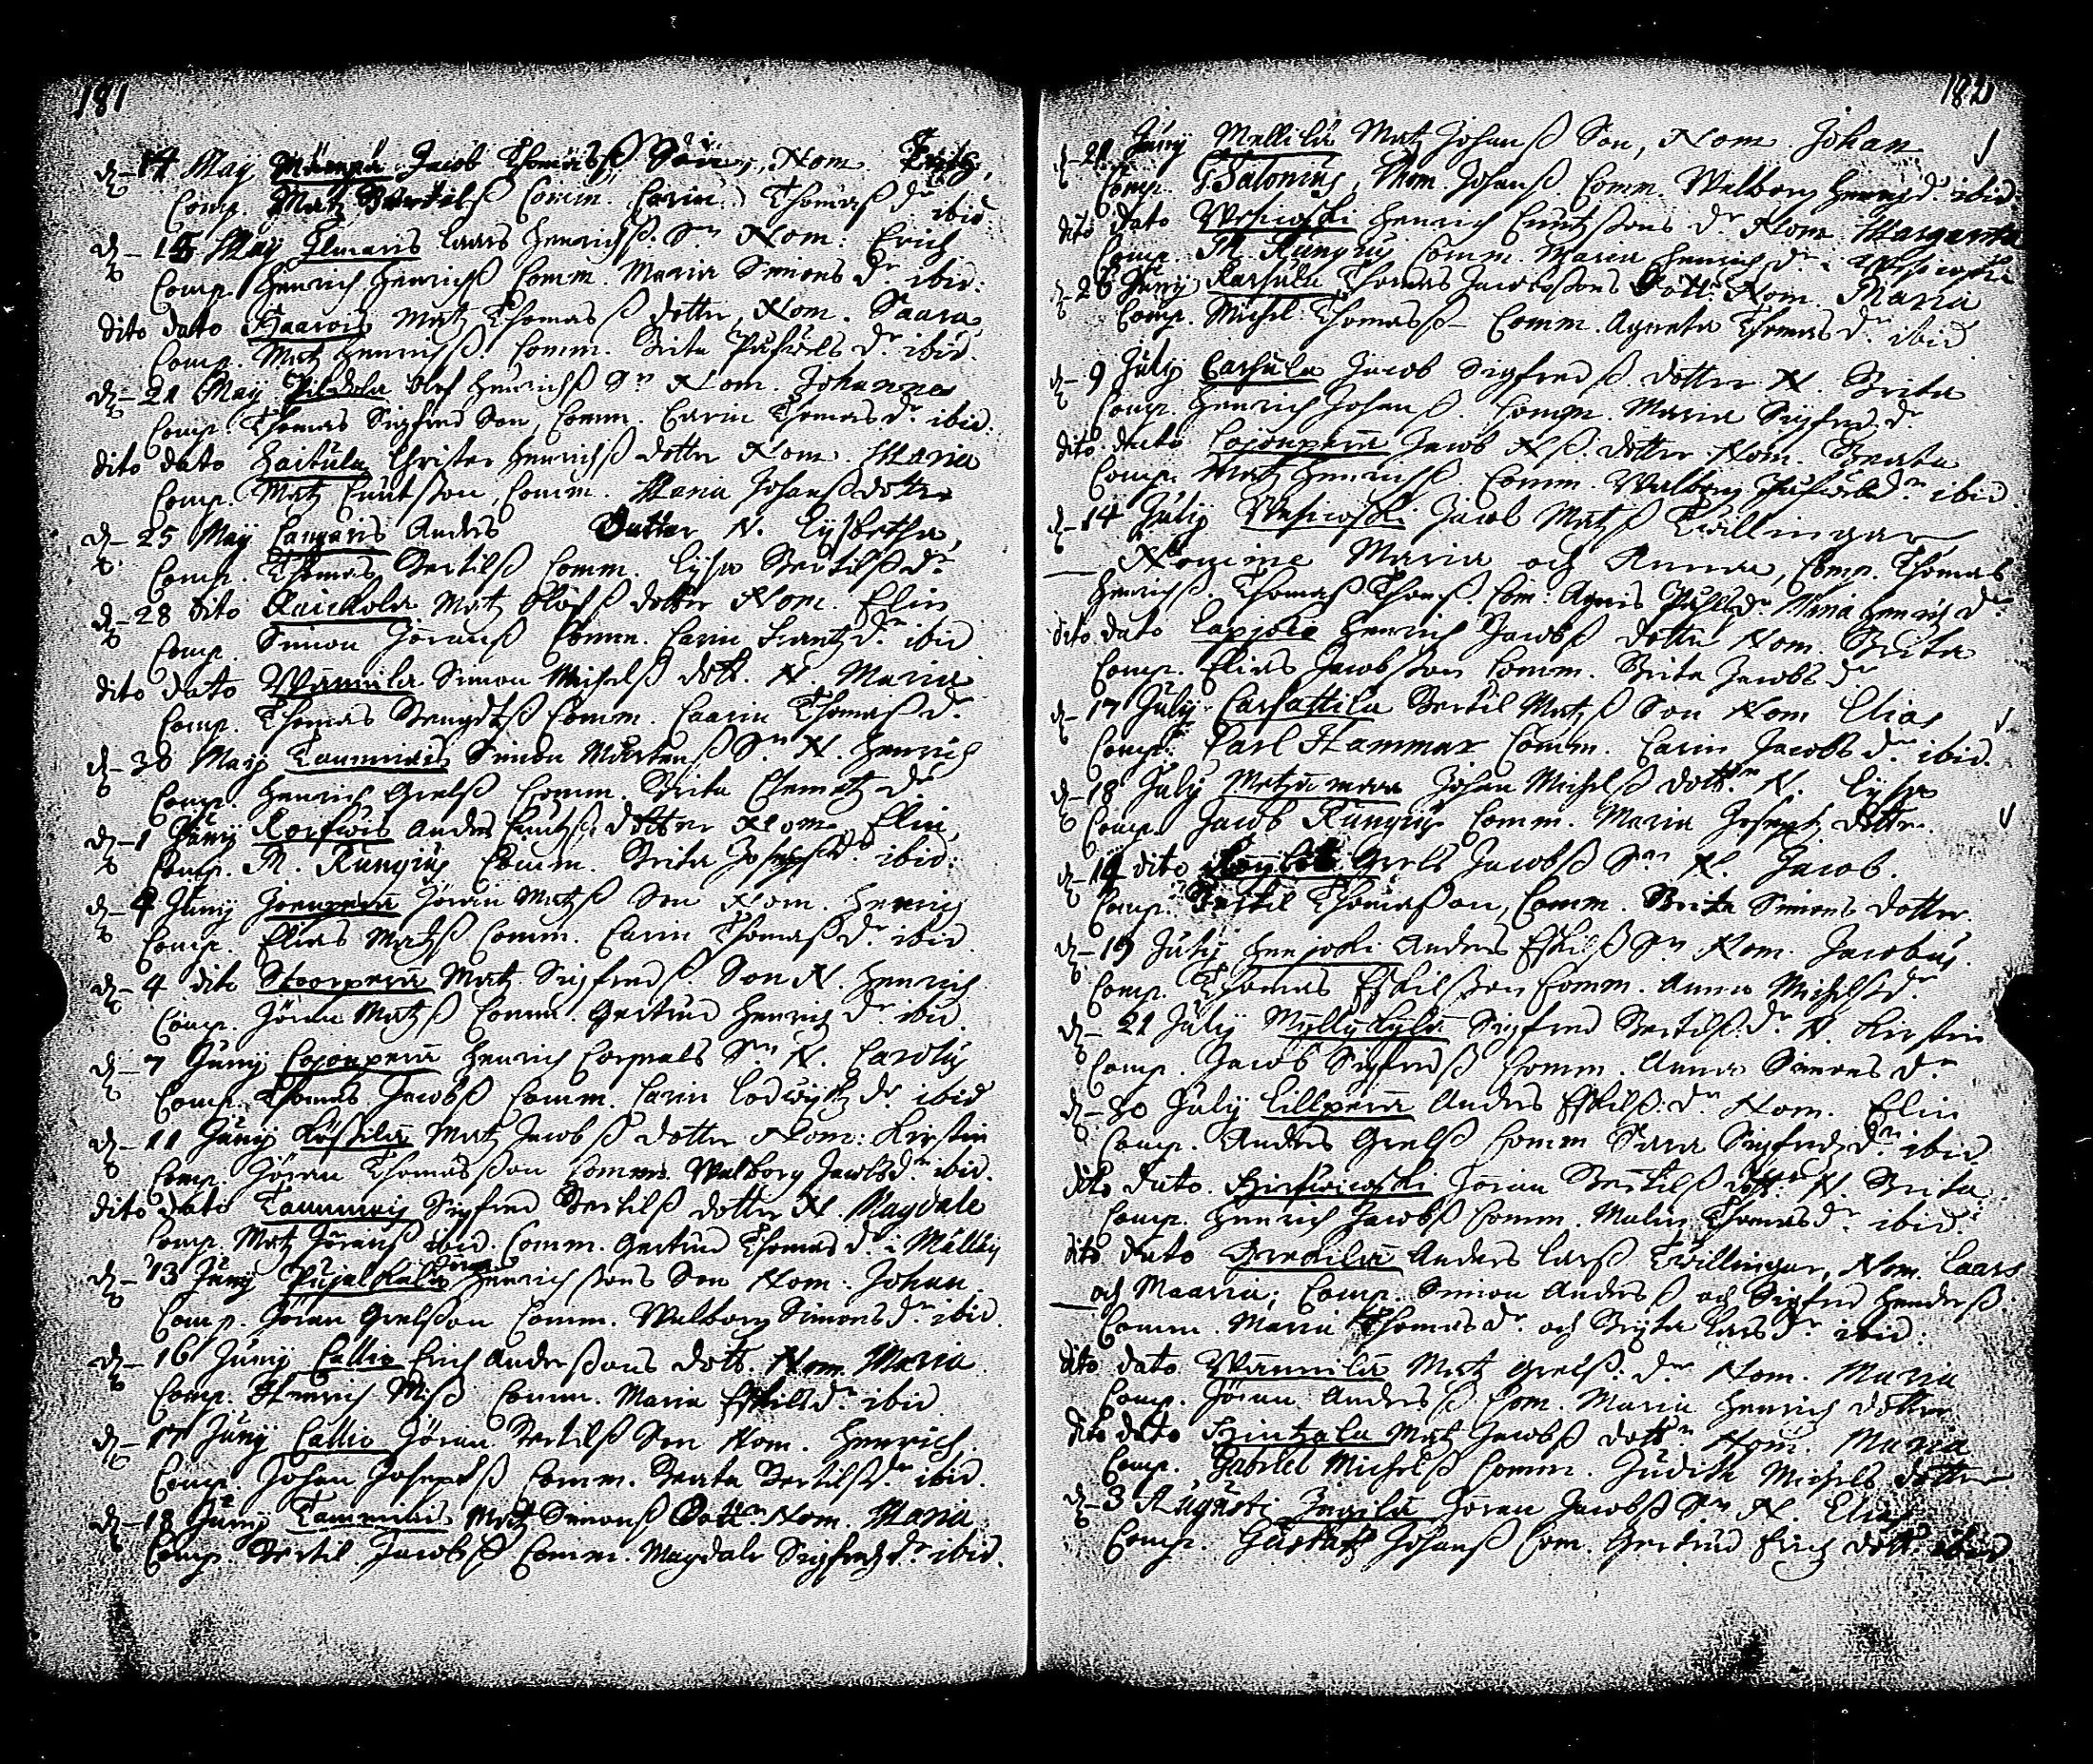 181
d. 14 Maÿ Mämpä Jacob Thomasß Son, Nom.
Comp. Matz Bertilß Comm. Carin Thomaß dr ibid.
d. 15 Maÿ Ilmaris Laars Henrichß Sn Nom: Erich
Comp. Henrich Henrichß Comm. Maria Simons dr ibid:
dito dato Haarois Matz Thomasß dotter, Nom. Saara,
Comp. Matz Henrichß. Comm. Brita Påfwels dr ibid.
d. 21 Maÿ Pildola Olof Henrichß Sn Nom. Johannes
Comp. Thomas Sigfred Son, Comm. Carin Thomas dr ibid:
dito dato Haitula Christer Henrichß dotter Nom. Maria
Comp. Matz Cnutßon, Comm. Maria Johanßdotter
d. 25 Maÿ Cangaris Anders Dotter N. Lysbetha,
Comp. Thomas Bertilß Comm. Lysa Bertilßdr
d. 28 dito Raickola Matz Olofß dotter Nom. Elin
Comp. Simon Jöranß Comm. Carin Frantz dr ibid
dito dato Wännilä Simon Michelß dott. N. Maria
Comp. Thomas Bengdtß Comm. Caarin Thomaß dr
d. 30 Maÿ Tammiais Simon Mårtenß Sn N. Henrich
Comp. Henrich Grelß Comm. Brita Clemetz dr
d. 1 Junÿ Korfwois Anders Cnutß. dotter Nom. Elin,
Comp. M. Rungius Comm. Brita Josephs dr ibid:
d. 4 Junÿ Joenperä Jöran Matzß Son Nom. Henrich
Comp. Elias Matzß Comm. Carin Thomaßdr ibid
d. 4 dito Stoorperä Matz Sigfredß. Son N. Henrich
Comp. Jöran Matzß Comm. Gertrud Henrich dr ibid.
d. 7 Junÿ Cojonperä Henrich Corpeals Sn N. Carolus
Comp. Thomas Jacobß Comm. Carin Lodwÿchz dr ibid
d. 11 Junÿ Rößilä Matz Jacobß dotter Nom: Kirstin
Comp. Jöran Thomäsßon Comm. Walborg Jacobsdr ibid.
dito dato Tammois Sigfred Bertilß dotter N. Magdale
Comp. Matz Jöranß ibid. Comm. Gertrud Thomas dr i Mälläis
d. 13 Junÿ Pujalkala Jöran Henrichßons Son Nom: Johan
Comp. Jöran Grelßon Comm. Walborg Simonsdr ibid.
d. 16 Junÿ Callio Erich Anderßons dott. Nom. Maria
Comp. Henrich Mß Comm. Maria Eskilsdr ibid
d. 17 Junÿ Callio Jöran Bertilß Son Nom. Henrich.
Comp. Johan Josephß Comm. Beata Bertilßdr ibid.
d. 18 Junÿ Tammiais Matz Simonß Dottr Nom. Maria
Comp. Bertil Jacobß Comm. Magdale Sigfredz dr ibid.
182
d. 21 Junÿ Mallilä Matz Johanß Son, Nom. Johan
Comp. G Salonius, Thom. Johanß. Comm. Walborg Henrichdr ibid:
dito dato Wesiwoski Henrich Cnutzßons dr Nom. Margareta
Comp. M. Rungius Comm. Maria Henrich dr i Wesiwoski
d. 26 Junÿ Karsula Thomas Jacobßons Dott. Nom. Maria
Comp. Michel Thomasß Comm. Agneta Thomas dr ibid
d. 9 Julÿ Carsula Jacob Sigfredß. dotter N. Brita
Comp. Henrich Johanß. Comm. Maria Sigfredz dr
dito dato Cojonperä Jacob Nß. dotter Nom. Beata
Comp. Matz Henrichß Comm. Walborg Påfwelsdr ibid.
d. 14 Julÿ Wesiwoski Jacob Matzß Twillingar
Nomine Maria och Anna, Comp. Thomas
Henrichß. Thomaß Thomß. Com: Agnis Påfwls dr Maria Henrich dr
dito dato Lapjois Henrich Jacobß dotter Nom. Brita
Comp. Elias Jacobßon Comm. Brita Jacobs dr
d. 17 Julÿ Carsattila Bertil Matzß Son Nom Elias
Comp: Carl Hammar Comm. Carin Jacobs dr ibid.
d. 18 Julÿ Metzämaa Johan Michelß dottr N. Lysa
Comp. Jacob Rungius Comm. Maria Josephz dotter.
d. 14 dito Grels Jacobß Sn N. Jacob.
Comp. Bertil Thomaßon, Comm. Brita Simons dotter
d. 19 Julÿ Henjoki Anders Eskilß Sn Nom. Jacobus.
Comp. Thomas Eskilßon Comm. Anna Michelsdr
d. 21 Julÿ Mÿllÿkÿlä Sigfred Bertilß: dr N. Kirstin
Comp. Jacob Sigfredß Comm. Anna Simons dr
d. 30 Julÿ Lillperä Anders Eskilß: dr Nom. Elin
Comp. Anders Grelß Comm Sara Sigfredz dr ibid
dito dato Hirfwiwoski Jöran Bertilß dottr N. Brita
Comp. Henrich Jacobß Comm. Malin Thomasdr ibid.
dito dato Greckilä Anders Larß Twillingar, Nom. Laars
och Maaria; Comp. Simon Andersß och Sigfred Hendrß.
Comm. Maria Thomasdr. och Bryta Larsdr ibid:
dito dato Wännilä Matz Grelß: dr Nom. Maria
Comp. Jöran Andersß Com. Maria Henrich dotter
dito dato Hintzala Matz Jacobß dottr Nom. Maria
Comp. Gabriel Michelß Comm. Judith Michels dotter
d. 3 Augusti Jägilä Jöran Jacobß Sn N. Elias
Comp. Gustaff Johanß Com. Gertrud Erich dott. ibid